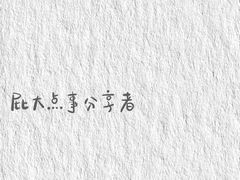 屁大点事分享者